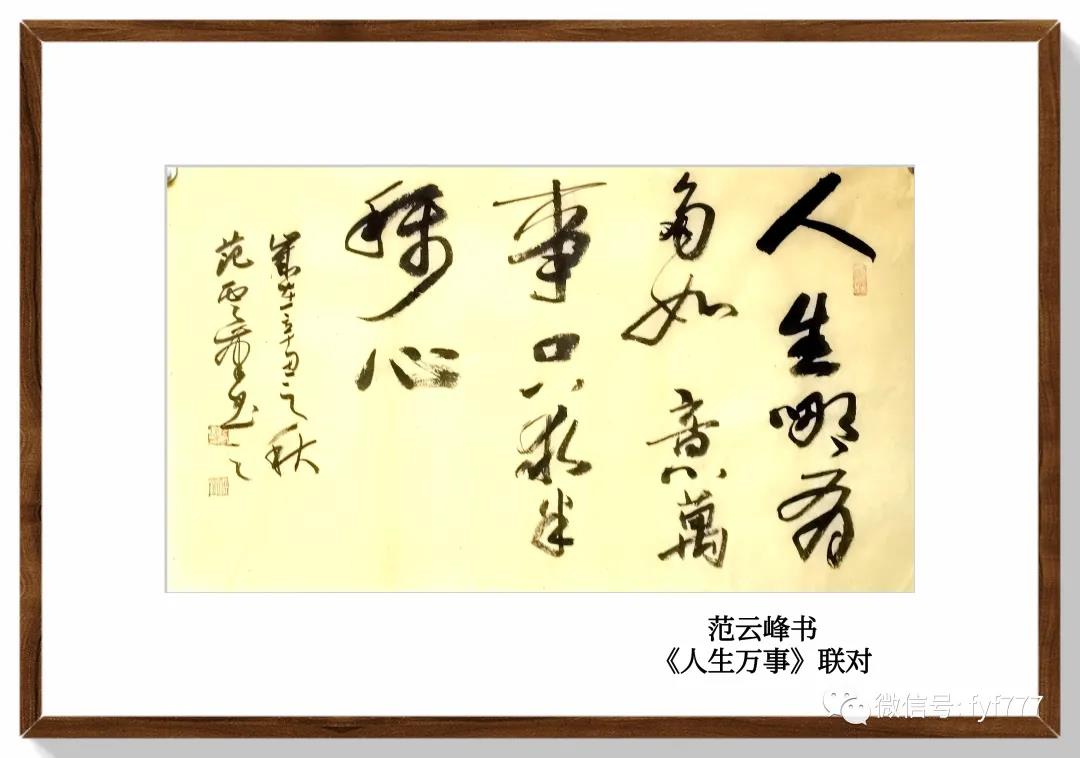 人生哪有
多如意萬
事只求半
稱心
歲在辛丑之秋
范雲峯书
范云峰书
《人生万事》联对
微信号: fyf777